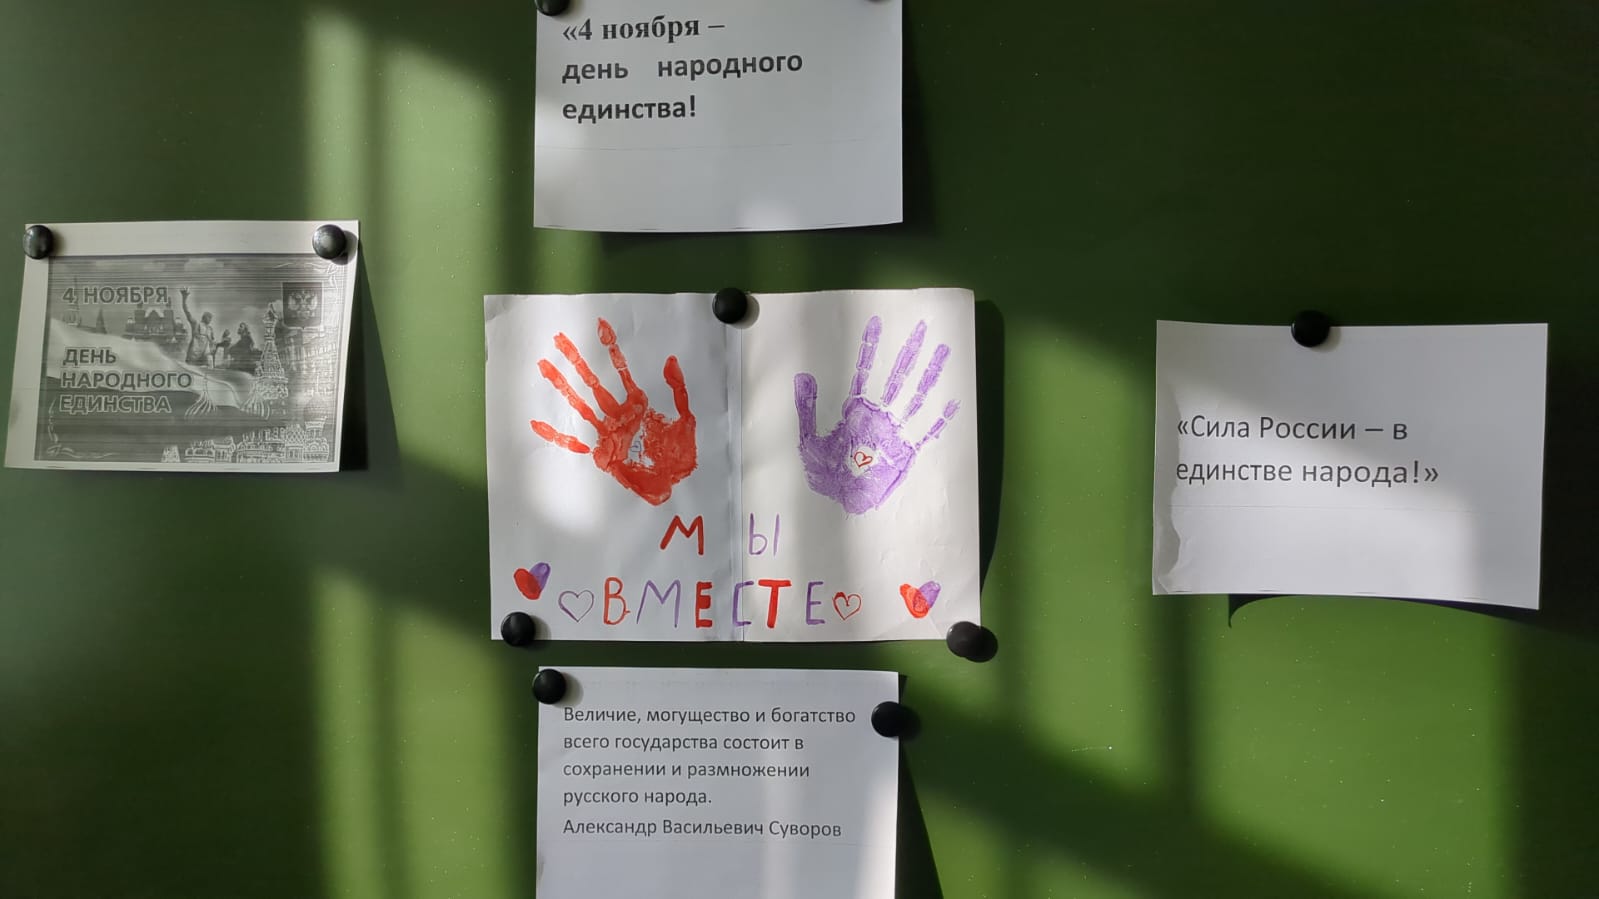 «4 ноября –
день народного
единства!
4 НОЯБРЯ
ДЕНЬ
НАРОДНОГО
ЕДИНСТВА
МЫ
ВМЕСТЕ
«Сила России – в
единстве народа!»
Величие, могущество и богатство
всего государства состоит в
сохранении и размножении
русского народа.
Александр Васильевич Суворов